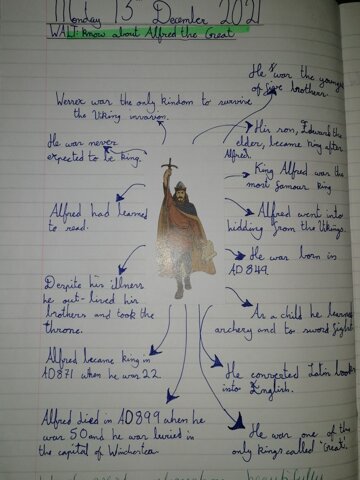 Monday 13th December 2021
WALT: Know about Alfred the Great
He was the younges
of five brothers
Wessex was the only kindom to survive
the Viking invasion.
His son, Edward the
elder, became king after
Alfred.
He was never
expected to be king.
King Alfred was the
most famous king.
Alfred had learned
to read.
Alfred went into
hidding from the Vikings.
He was born in
AD 849.
Despite his illness
he out-lived his
brothers and took the
throne.
As a child he learned
archery and to sword fight.
Alfred became king in
AD871 when he was 22.
He converted Latin books
into English.
Alfred died in AD899 when he
was 50 and he was buried in
the capital of Winchester.
He was one of the
only kings called 'Great'.
beautifully